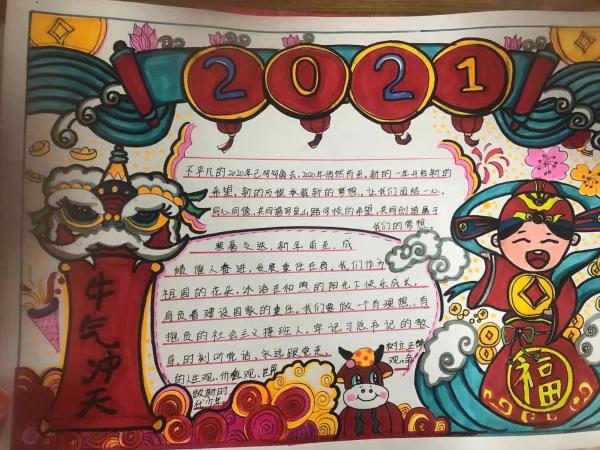 2021
不平凡的2020年已匆匆离去,2021年悄然而至,新的一年开启新的
希望,新的历程承载新的梦想,让我们团结一心,
同心同德,共同谱写泉山路学校的希望,共同创造属于
我们的梦想。
寒暑交迭,新年甫至,成
绩催人奋进,发展重任在肩,我们作为
祖国的花朵,沐浴在和煦的阳光下快乐成长,
肩负着建设国家的重任,我们要做一个有理想、有
抱负的社会主义接班人,牢记习总书记的教
导,时刻听党话,永远跟党走,
树立正确
的人生观、价值观、世界
观,争
做新时
代少年
牛气冲天
福